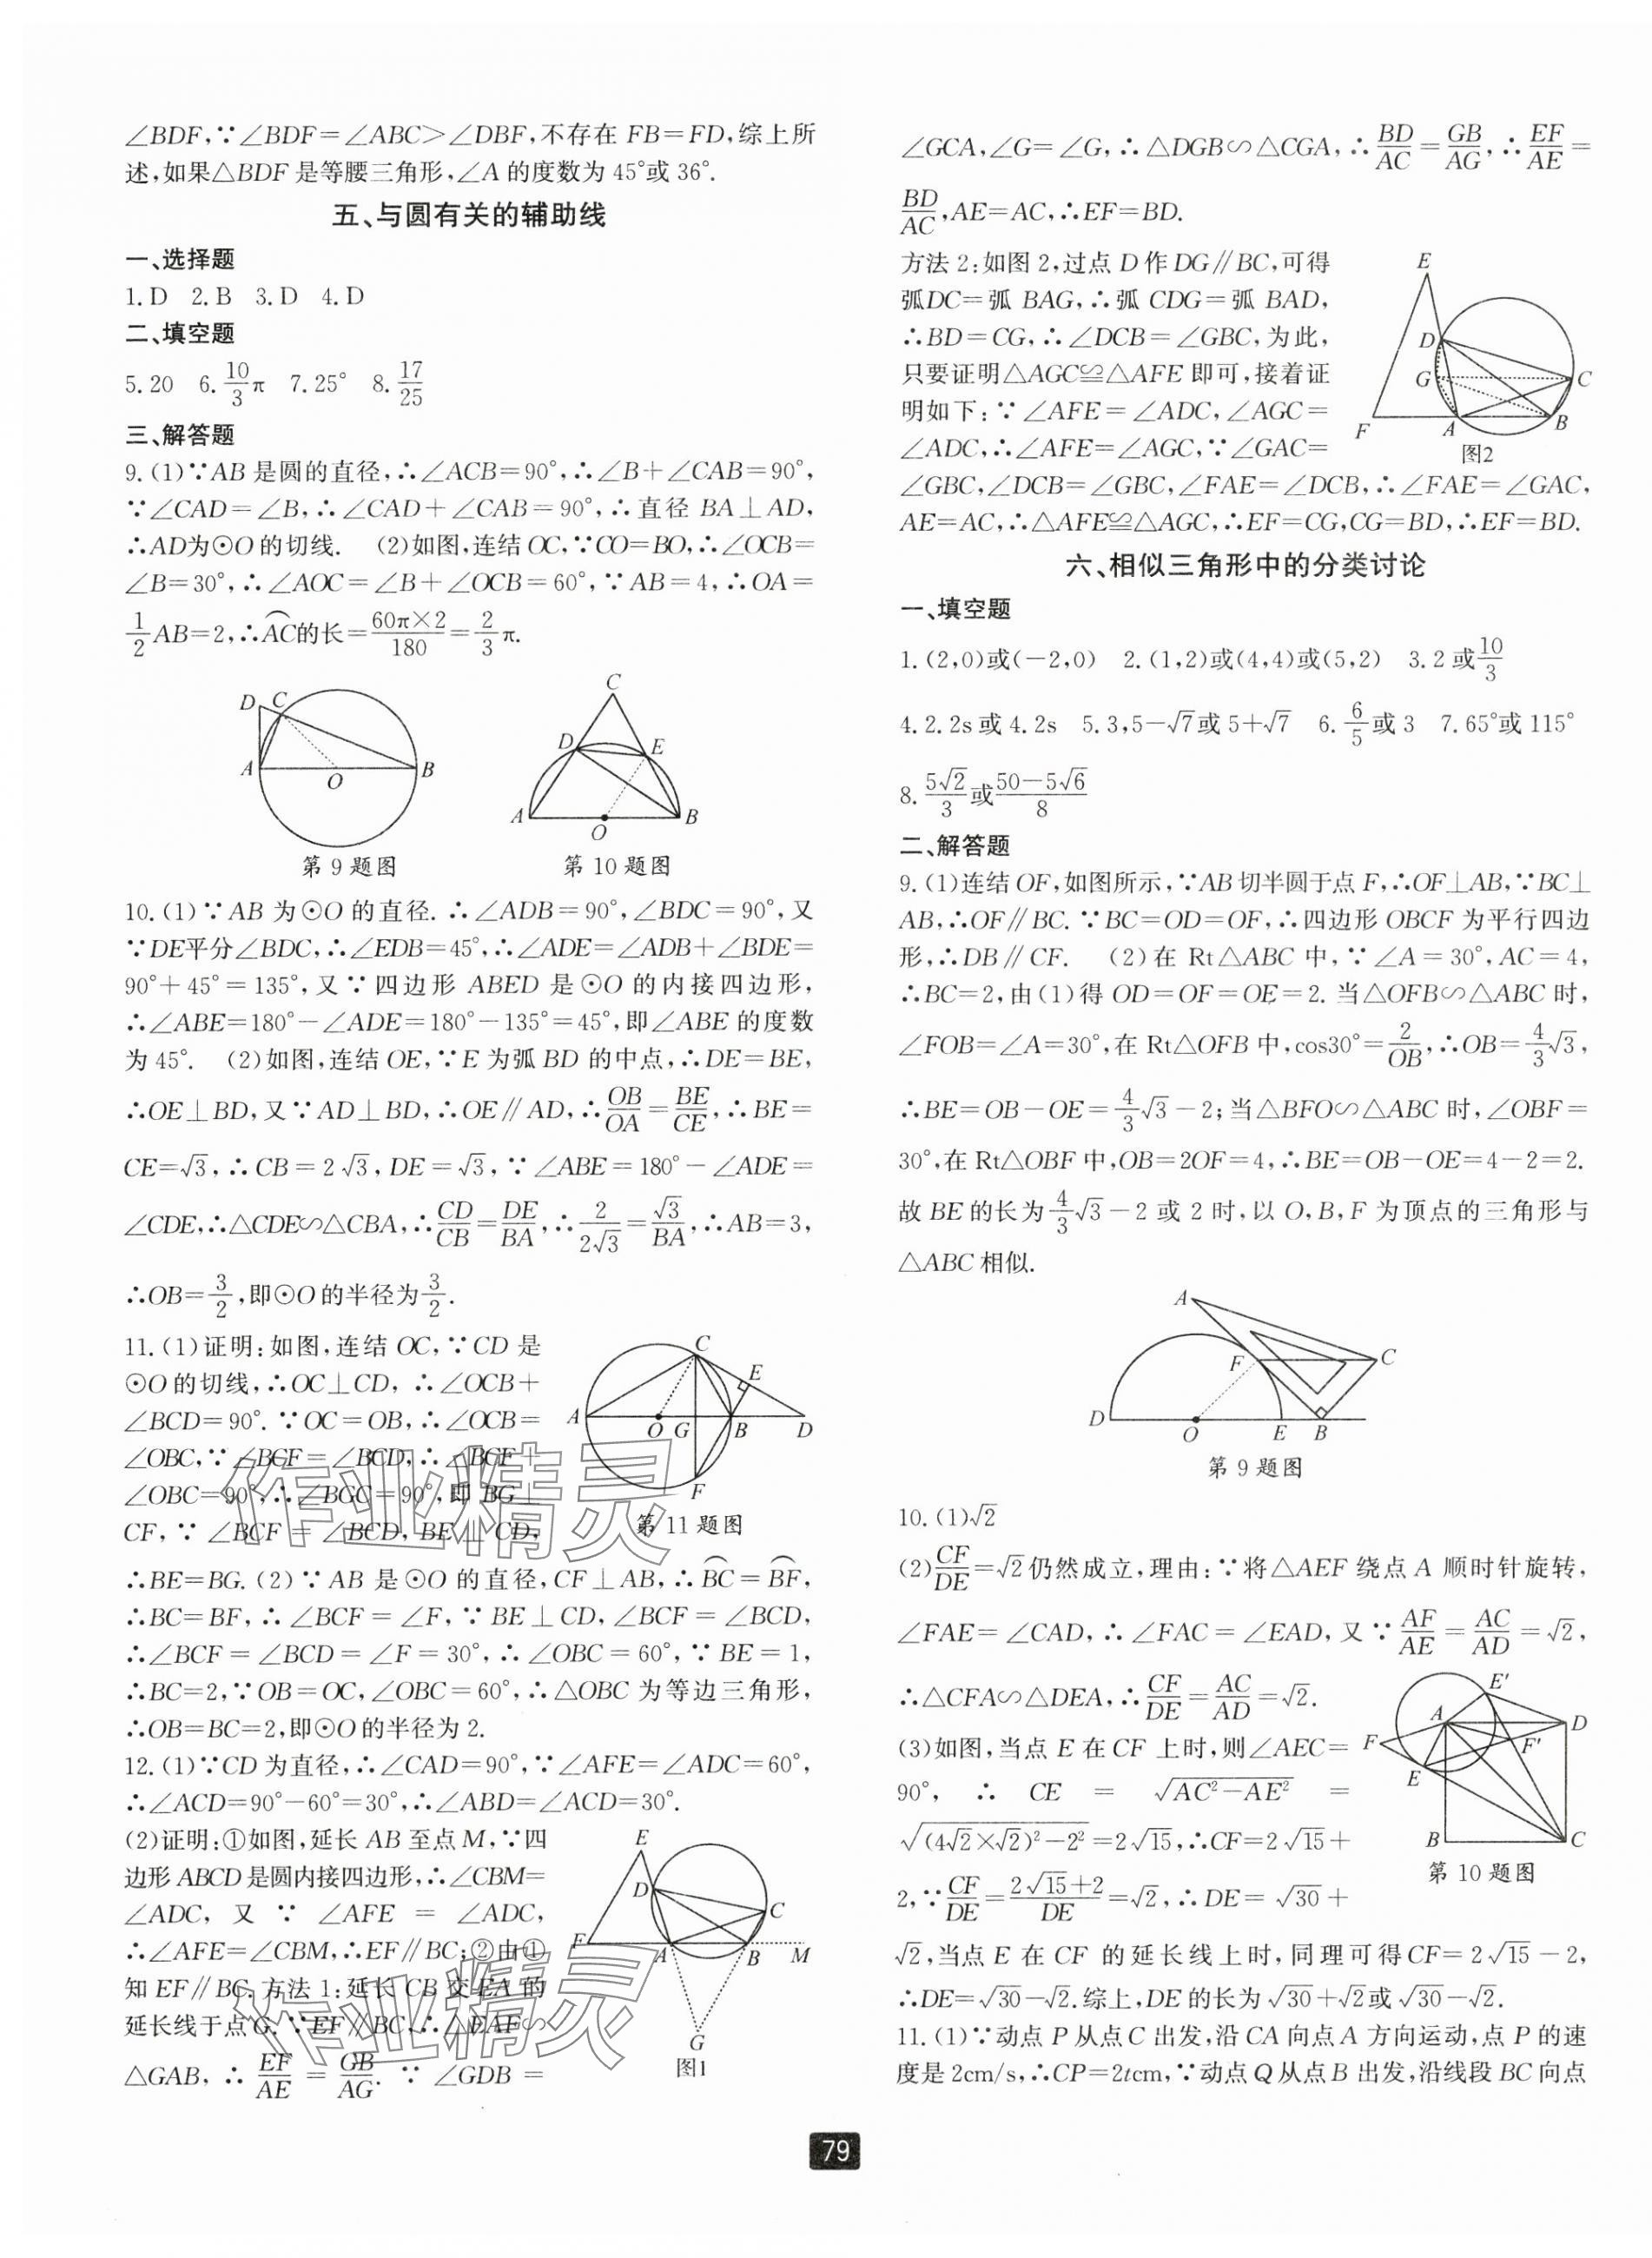 ∠BDF,∵∠BDF=∠ABC>∠DBF,不存在 FB=FD,综上所
述,如果△BDF 是等腰三角形,∠A 的度数为 45°或 36°.
五、与圆有关的辅助线
一、选择题
1.D 2.B 3.D 4.D
二、填空题
5.20 6.10/3π 7.25° 8.17/25
三、解答题
9.(1)∵AB 是圆的直径,∴∠ACB=90°,∴∠B+∠CAB=90°,
∵∠CAD=∠B,∴∠CAD+∠CAB=90°,∴直径 BA⊥AD,
∴AD为⊙O 的切线. (2)如图,连结 OC,∵CO=BO,∴∠OCB=
∠B=30°,∴∠AOC=∠B+∠OCB=60°,∵AB=4,∴OA=
1/2AB=2,∴⌒AC的长=60π×2/180=2/3π.
D C A O B
第 9 题图
C D E A O B
第 10 题图
10.(1)∵AB 为⊙O 的直径.∴∠ADB=90°,∠BDC=90°,又
∵DE平分∠BDC,∴∠EDB=45°,∴∠ADE=∠ADB+∠BDE=
90°+45°=135°,又∵四边形 ABED 是⊙O 的内接四边形,
∴∠ABE=180°-∠ADE=180°-135°=45°,即∠ABE 的度数
为 45°. (2)如图,连结 OE,∵E 为弧 BD 的中点,∴DE=BE,
∴OE⊥BD,又∵AD⊥BD,∴OE∥AD,∴OB/OA=BE/CE,∴BE=
CE=√3,∴CB=2√3,DE=√3,∵∠ABE=180°-∠ADE=
∠CDE,∴△CDE∽△CBA,∴CD/CB=DE/BA,∴2/2√3=√3/BA,∴AB=3,
∴OB=3/2,即⊙O 的半径为3/2.
11.(1)证明:如图,连结 OC,∵CD 是
⊙O 的切线,∴OC⊥CD,∴∠OCB+
∠BCD=90°.∵OC=OB,∴∠OCB=
∠OBC,∵∠BCF=∠BCD,∴∠BCF+
∠OBC=90°,∴∠BGC=90°,即 BG⊥
CF,∵∠BCF=∠BCD,BE⊥CD,
C E A O G B D F
第 11 题图
∴BE=BG.(2)∵AB 是⊙O 的直径,CF⊥AB,∴⌒BC=⌒BF,
∴BC=BF,∴∠BCF=∠F,∵BE⊥CD,∠BCF=∠BCD,
∴∠BCF=∠BCD=∠F=30°,∴∠OBC=60°,∵BE=1,
∴BC=2,∵OB=OC,∠OBC=60°,∴△OBC 为等边三角形,
∴OB=BC=2,即⊙O 的半径为 2.
12.(1)∵CD 为直径,∴∠CAD=90°,∵∠AFE=∠ADC=60°,
∴∠ACD=90°-60°=30°,∴∠ABD=∠ACD=30°.
(2)证明:①如图,延长 AB 至点 M,∵四
边形 ABCD 是圆内接四边形,∴∠CBM=
∠ADC,又∵∠AFE=∠ADC,
∴∠AFE=∠CBM,∴EF∥BC;②由①
知 EF∥BC.方法 1:延长 CB 交 EA 的
延长线于点 G.∵EF∥BC,∴△EAF∽
△GAB,∴EF/AE=GB/AG.∵∠GDB=
E D C F A B M G
图1
∠GCA,∠G=∠G,∴△DGB∽△CGA,∴BD/AC=GB/AG,∴EF/AE=
BD/AC,AE=AC,∴EF=BD.
方法 2:如图 2,过点 D 作 DG∥BC,可得
弧DC=弧 BAG,∴弧 CDG=弧 BAD,
∴BD=CG,∴∠DCB=∠GBC,为此,
只要证明△AGC≌△AFE 即可,接着证
明如下:∵∠AFE=∠ADC,∠AGC=
∠ADC,∴∠AFE=∠AGC,∵∠GAC=
∠GBC,∠DCB=∠GBC,∠FAE=∠DCB,∴∠FAE=∠GAC,
AE=AC,∴△AFE≌△AGC,∴EF=CG,CG=BD,∴EF=BD.
E D G C F A B
图2
六、相似三角形中的分类讨论
一、填空题
1.(2,0)或(-2,0) 2.(1,2)或(4,4)或(5,2) 3.2 或10/3
4.2.2s 或 4.2s 5.3,5-√7或 5+√7 6.6/5或 3 7.65°或 115°
8.5√2/3或50-5√6/8
二、解答题
9.(1)连结 OF,如图所示,∵AB 切半圆于点 F,∴OF⊥AB,∵BC⊥
AB,∴OF∥BC.∵BC=OD=OF,∴四边形 OBCF 为平行四边
形,∴DB∥CF. (2)在 Rt△ABC 中,∵∠A=30°,AC=4,
∴BC=2,由(1)得 OD=OF=OE=2.当△OFB∽△ABC 时,
∠FOB=∠A=30°,在 Rt△OFB 中,cos30°=2/OB,∴OB=4/3√3,
∴BE=OB-OE=4/3√3-2;当△BFO∽△ABC 时,∠OBF=
30°,在 Rt△OBF 中,OB=2OF=4,∴BE=OB-OE=4-2=2.
故 BE 的长为4/3√3-2 或 2 时,以 O,B,F 为顶点的三角形与
△ABC 相似.
A F C D O E B
第 9 题图
10.(1)√2
(2)CF/DE=√2仍然成立,理由:∵将△AEF 绕点 A 顺时针旋转,
∠FAE=∠CAD,∴∠FAC=∠EAD,又∵AF/AE=AC/AD=√2,
∴△CFA∽△DEA,∴CF/DE=AC/AD=√2.
(3)如图,当点 E 在 CF 上时,则∠AEC=
90°,∴CE=√(AC²-AE²)=
√((4√2×√2)²-2²)=2√15,∴CF=2√15+
2,∵CF/DE=(2√15+2)/DE=√2,∴DE=√30+
√2,当点 E 在 CF 的延长线上时,同理可得CF=2√15-2,
∴DE=√30-√2.综上,DE 的长为√30+√2或√30-√2.
E′ A D F F′ E B C
第 10 题图
11.(1)∵动点 P 从点 C 出发,沿 CA 向点 A 方向运动,点 P 的速
度是 2cm/s,∴CP=2tcm,∵动点 Q 从点 B 出发,沿线段 BC 向点
作业精灵
作业精灵
79